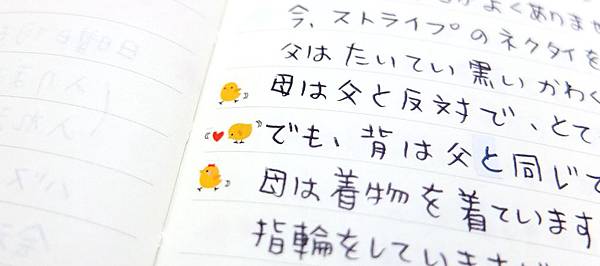 がよくありませ
今、ストライプのネクタイを
父はたいてい黒いかわく
母は父と反対で、とて
でも、背は父と同じて
母は着物を着ています
指輪をしていま